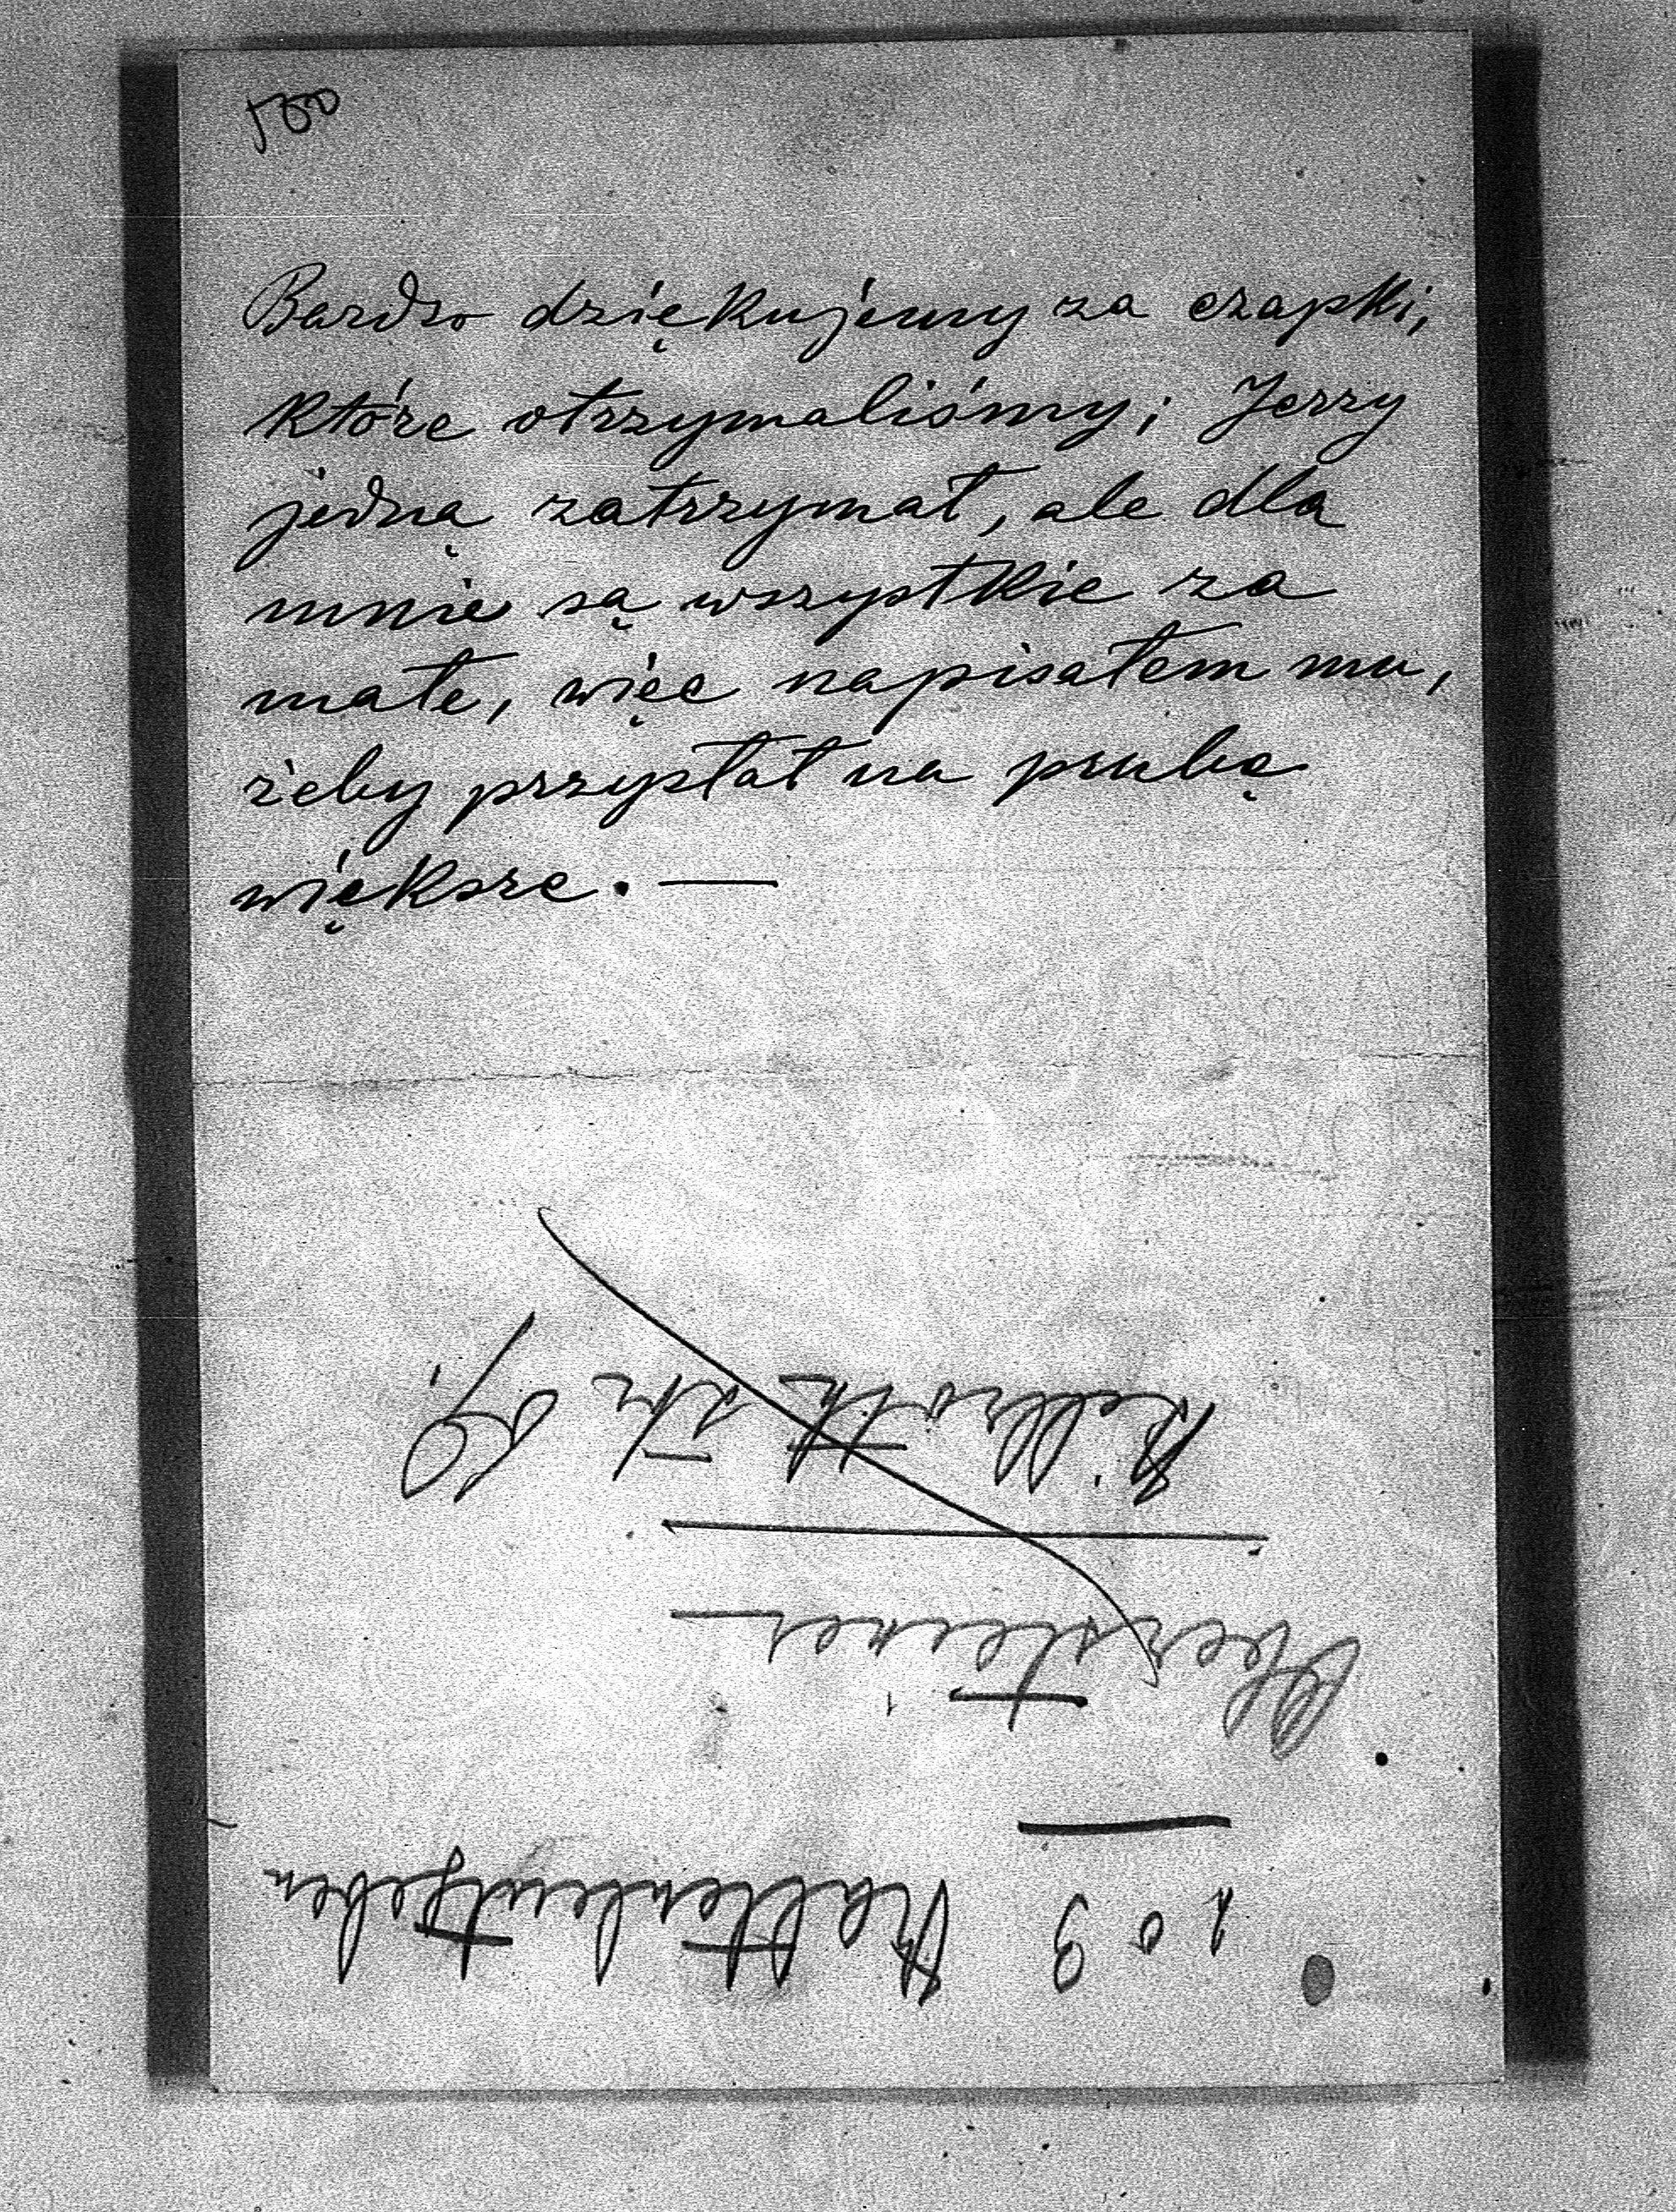 500
Bardzo dziękujemy za czapki,
które otrzymaliśmy; Jerzy
jedną zatrzymał, ale dla
mnie są wszystkie za
małe, więc napisałem mu,
żeby przysłał na prubę
większe. —
109 Kaltenleutgeben
Obersteiner
Billroth str 69.